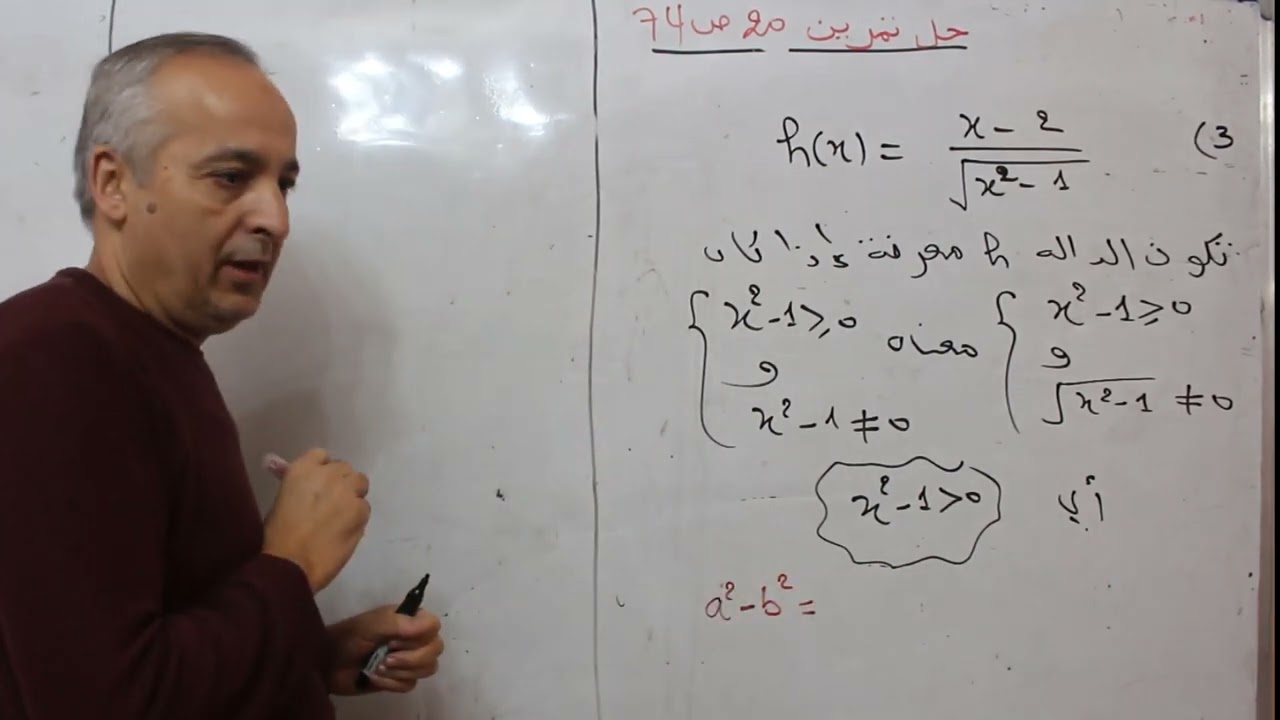 حل تمرين 20 ص 74
3) h(x) = \frac{x-2}{\sqrt{x^2-1}}
تكون الدالة h معرفة إذا كان
{ x²-1≥0 و √(x²-1) ≠ 0 معناه { x²-1≥0 و x²-1≠0
أي x²-1>0
a²-b²=